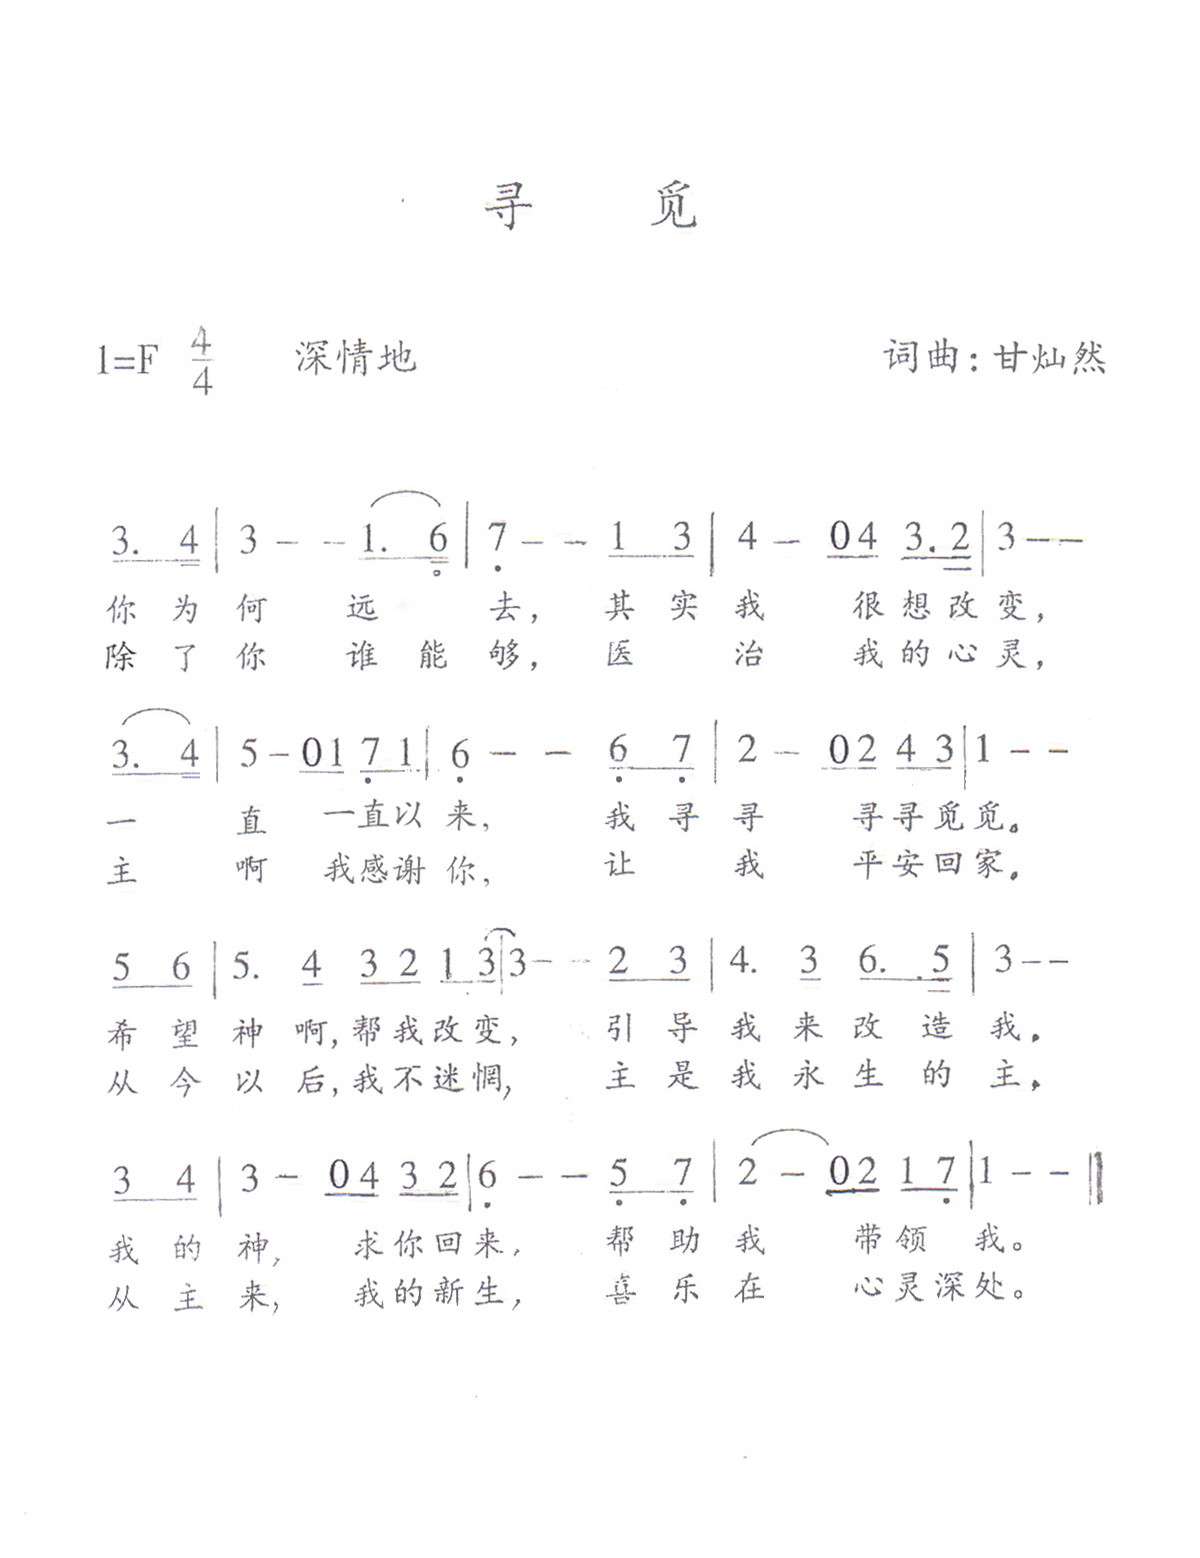 寻 觅
1=F 4/4 深情地 词曲:甘灿然
3. 4 | 3 - - 1. 6 | 7 - - 1 3 | 4 - 04 3.2 | 3 - -
你为何 远 去,其实我 很想改变,
除了你 谁能够,医 治 我的心灵,
3. 4 | 5 - 01 7 1 | 6 - - 6 7 | 2 - 02 4 3 | 1 - -
一 直 一直以来, 我寻寻 寻寻觅觅。
主 啊 我感谢你, 让 我 平安回家.
5 6 | 5. 4 3 2 1 3 | 3 - - 2 3 | 4. 3 6. 5 | 3 - -
希望神啊,帮我改变, 引导我来改造我.
从今以后,我不迷惘, 主是我永生的主.
3 4 | 3 - 04 3 2 | 6 - - 5 7 | 2 - 02 1 7 | 1 - - ‖
我的神, 求你回来, 帮助我 带领我。
从主来, 我的新生, 喜乐在 心灵深处。